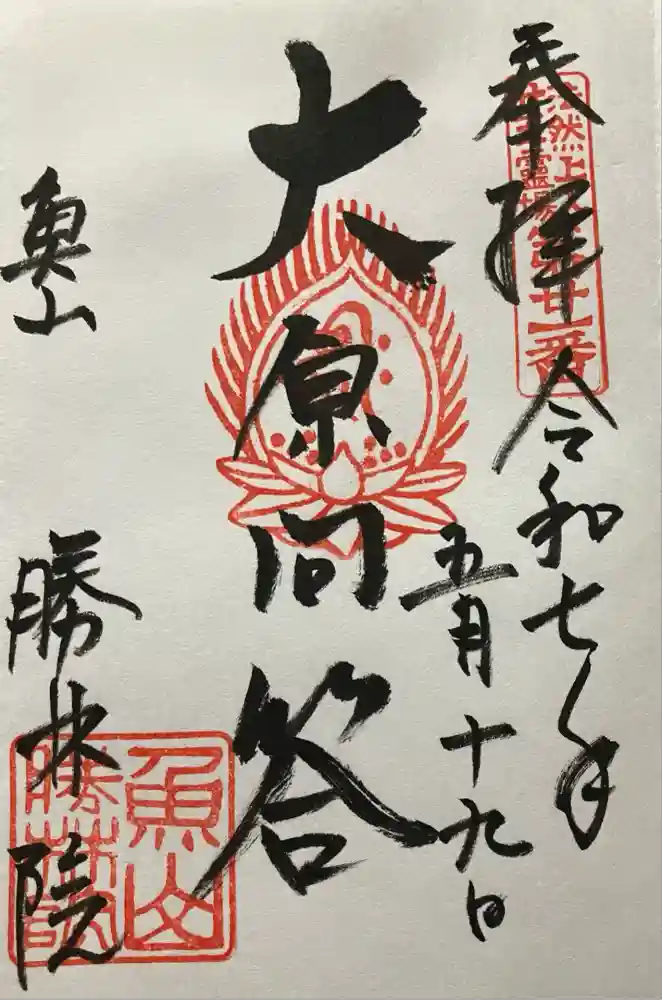 奉拝
令和七年
五月十九日
法然上人
二十五霊場第廿一番
大原問答
魚山
勝林院
魚山
勝林院